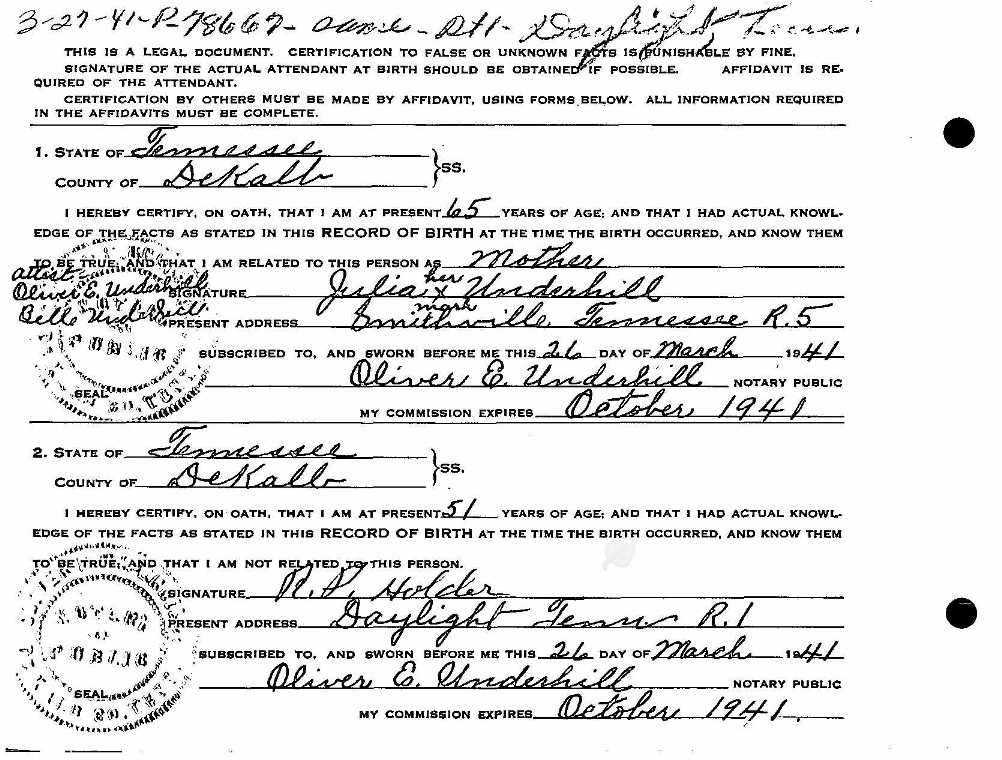 3-27-41-P-78667- same - Dtl- Daylight, Tenn.
THIS IS A LEGAL DOCUMENT. CERTIFICATION TO FALSE OR UNKNOWN FACTS IS PUNISHABLE BY FINE.
SIGNATURE OF THE ACTUAL ATTENDANT AT BIRTH SHOULD BE OBTAINED IF POSSIBLE. AFFIDAVIT IS RE-
QUIRED OF THE ATTENDANT.
CERTIFICATION BY OTHERS MUST BE MADE BY AFFIDAVIT, USING FORMS BELOW. ALL INFORMATION REQUIRED
IN THE AFFIDAVITS MUST BE COMPLETE.
1. STATE OF Tennessee
COUNTY OF DeKalb } SS.
I HEREBY CERTIFY, ON OATH, THAT I AM AT PRESENT 65 YEARS OF AGE; AND THAT I HAD ACTUAL KNOWL-
EDGE OF THE FACTS AS STATED IN THIS RECORD OF BIRTH AT THE TIME THE BIRTH OCCURRED, AND KNOW THEM
TO BE TRUE; AND THAT I AM RELATED TO THIS PERSON AS Mother
attest
her
Oliver E. Underhill SIGNATURE Julia x Underhill
mark
Bille Underhill PRESENT ADDRESS Smithville, Tennessee R.5
PUBLIC
SUBSCRIBED TO, AND SWORN BEFORE ME THIS 26 DAY OF March 1941
Oliver E. Underhill NOTARY PUBLIC
SEAL
CO. TENN.
MY COMMISSION EXPIRES October 1941
2. STATE OF Tennessee
COUNTY OF DeKalb } SS.
I HEREBY CERTIFY, ON OATH, THAT I AM AT PRESENT 51 YEARS OF AGE; AND THAT I HAD ACTUAL KNOWL-
EDGE OF THE FACTS AS STATED IN THIS RECORD OF BIRTH AT THE TIME THE BIRTH OCCURRED, AND KNOW THEM
TO BE TRUE; AND THAT I AM NOT RELATED TO THIS PERSON.
SIGNATURE R.P. Holder
PRESENT ADDRESS Daylight Tenn R.1
PUBLIC
SUBSCRIBED TO, AND SWORN BEFORE ME THIS 26 DAY OF March 1941
Oliver E. Underhill NOTARY PUBLIC
SEAL
CO. TENN.
MY COMMISSION EXPIRES October 1941.